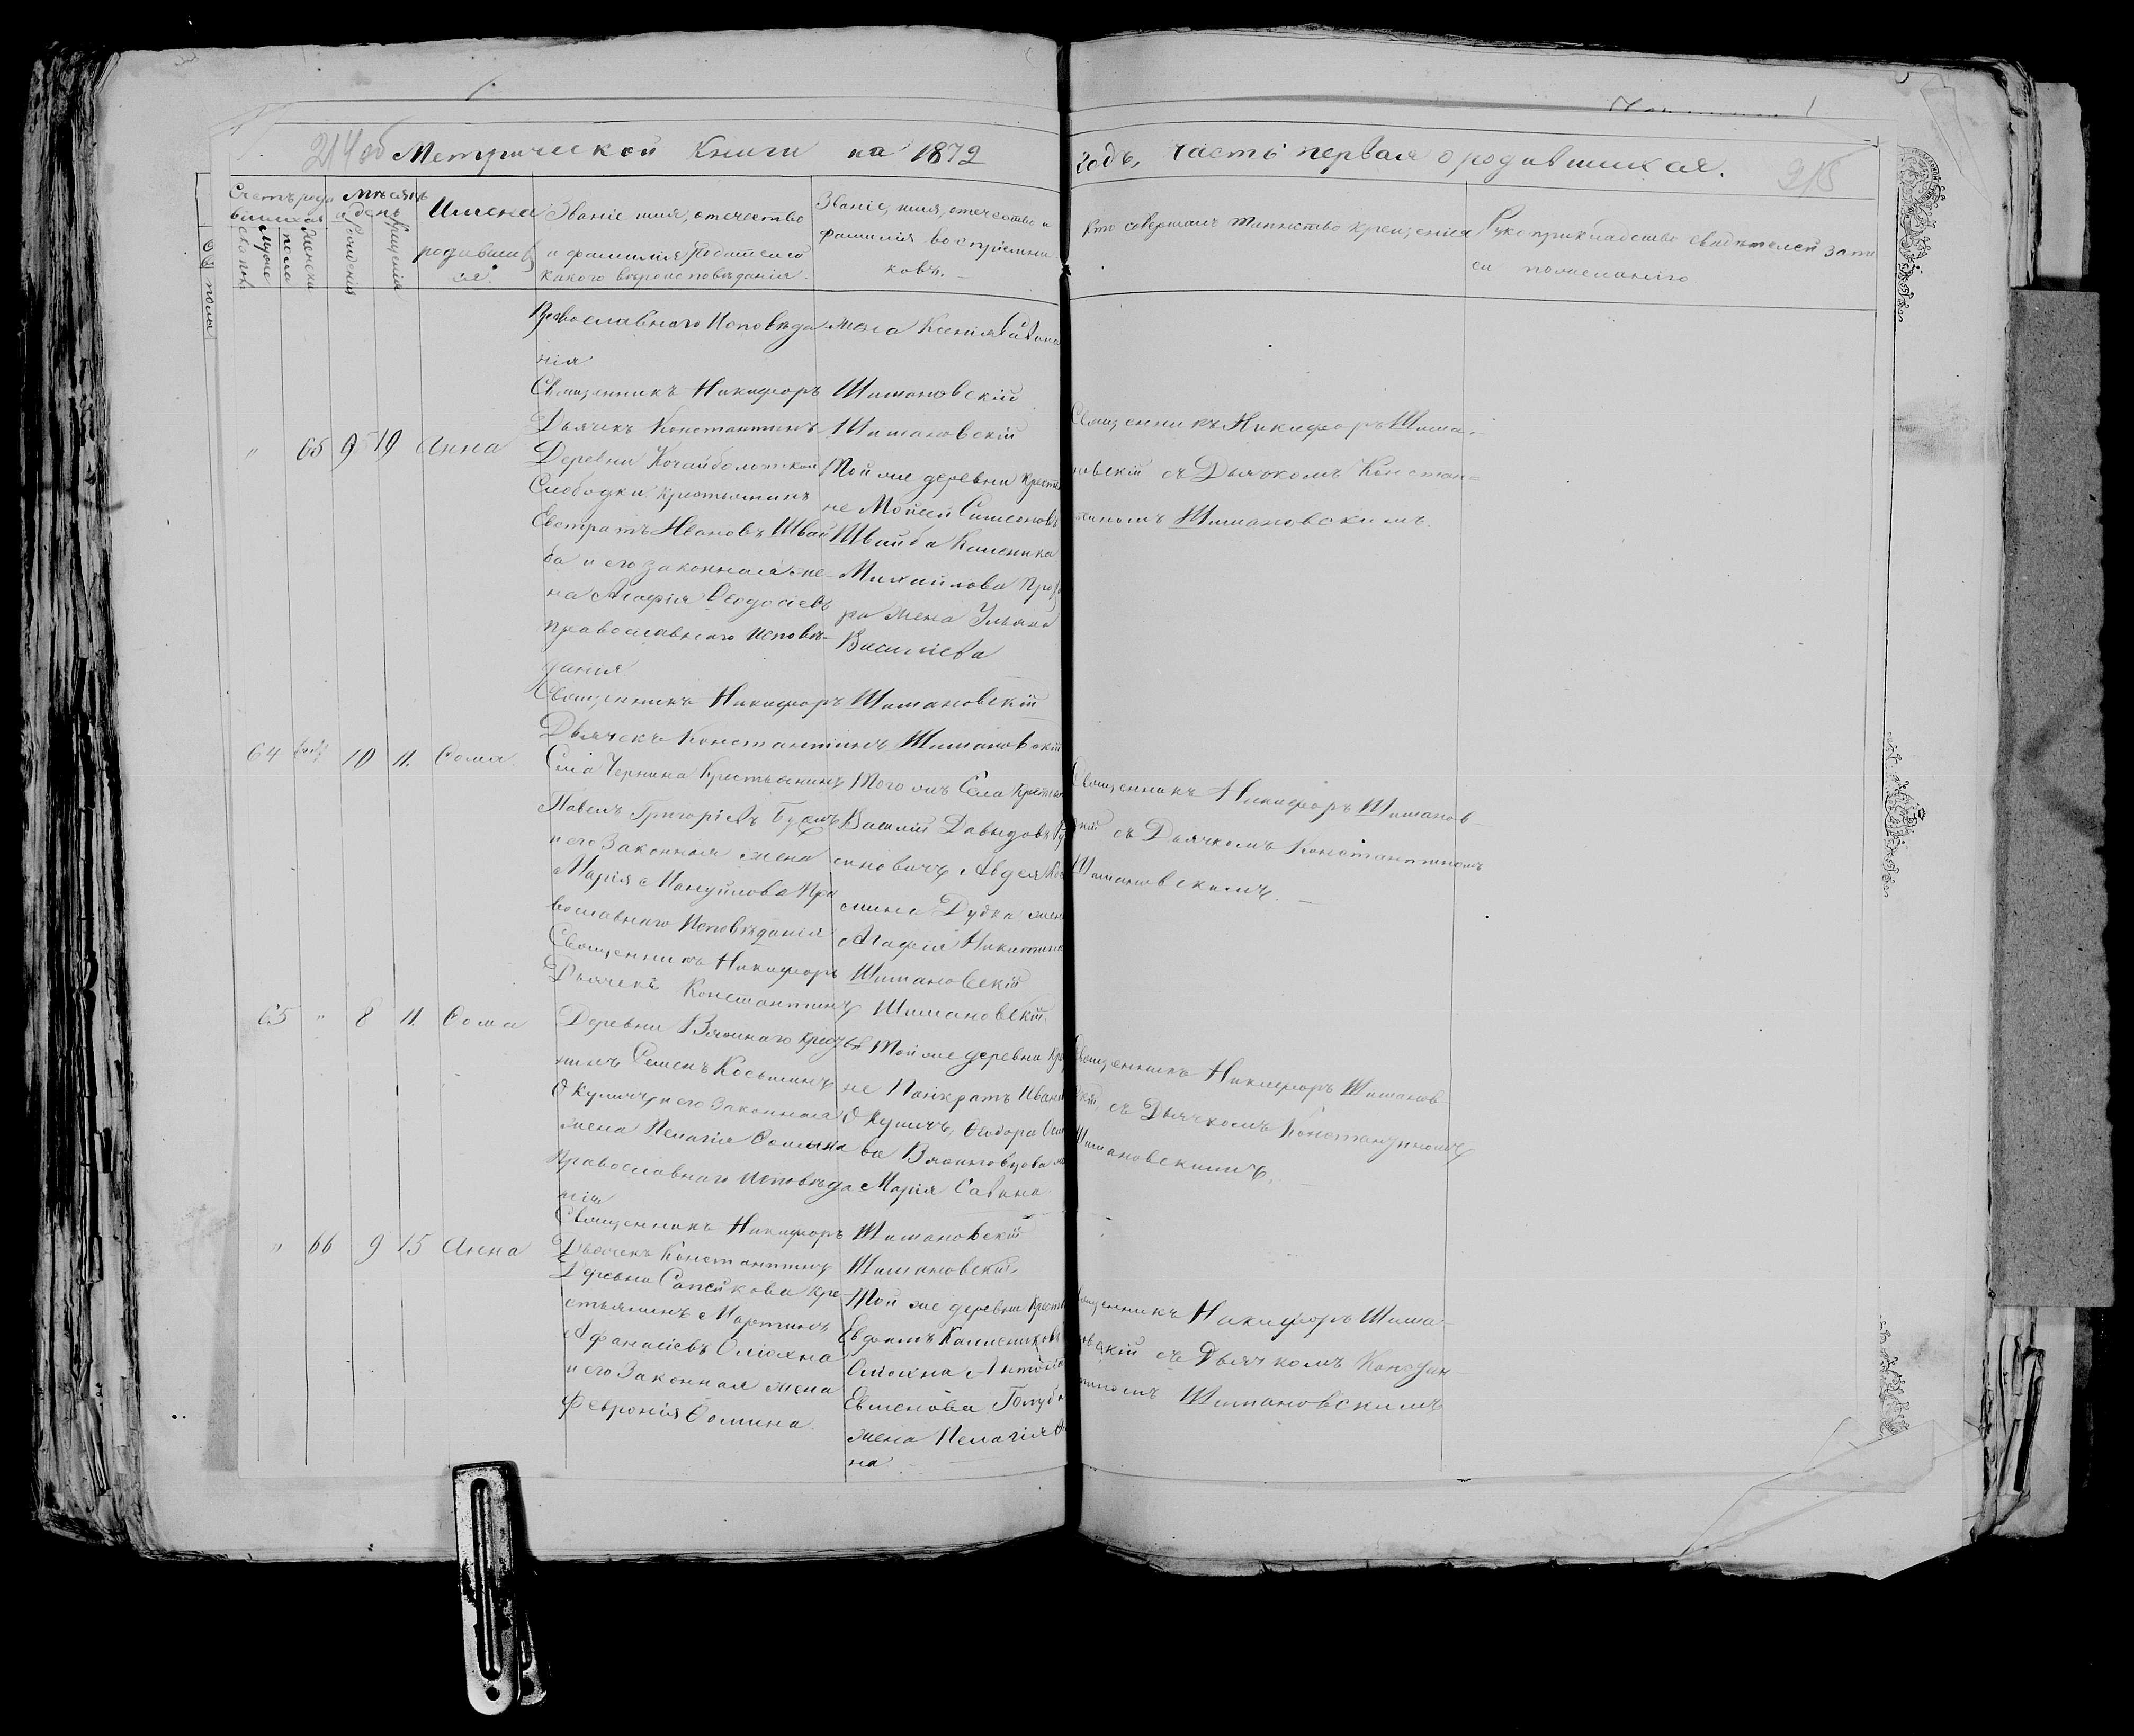 214 об Метрической Книги на 1872 годъ, часть первая о родившихся. 215
Счетъ роди
вшихся
Мужес
каго пол.
Женска
пола
Мѣсяцъ
и день
Рожденія
Крещенія
Имена
родивших
ся.
Званіе имя, отечество
и фамилія Родителей
какого вѣроисповѣданія.
Званіе, имя, отечество и
фамилія воспріемни
ковъ.
Кто совершалъ таинство крещенія
Рукоприкладство свидѣтелей запи
си по желанію
Православнаго Исповѣда
нія
жена Ксенія Савина
Священникъ Никифоръ Шимановскій
Дьячекъ Константинъ Шимановскій
" 65 9 19 Анна
Деревни
Слободки крестьянинъ
Евстратъ Ивановъ Швай
ба и его законная же-
на Агафія Ѳеодосіев
православнаго исповѣ-
данія
Той же деревни кресть
не Мойсей Симеоновъ
Швайба Каленика
Михайлова
ра жена Ульяна
Василіева
Священникъ Никифоръ Шима-
новскій съ Дьячкомъ Констан-
тиномъ Шимановскимъ.
Священникъ Никифоръ Шимановскій
Дьячекъ Константинъ Шимановскій
64 10 11. Ѳома.
Села Чернина Крестьянинъ
Павелъ Григоріевъ
и его Законная жена
Марія Мануйлова Пра
вославнаго Исповѣданія
Того жъ Села Кресть
Василій Давыдовъ
Авдея
Дудка жен
Агафія Никитина
Священникъ Никифоръ Шиманов
скій съ Дьячкомъ Константиномъ
Шимановскимъ.
Священникъ Никифоръ Шимановскій
Дьячекъ Константинъ Шимановскій.
65 " 8 11. Ѳома
Деревни Вязоннаго крестья
нинъ Семенъ Косьминъ
Окуличъ и его Законная
жена Пелагія Ѳомина
Православнаго исповѣда
нія
Той же деревни кре
не Панкратъ Иван
Окуличъ, Ѳеодора Оси
ва
Марія Савина
Священникъ Никифоръ Шиманов
скій, съ Дьячкомъ Константиномъ
Шимановскимъ.
Священникъ Никифоръ Шимановскій
Дьячекъ Константинъ Шимановскій
" 66 9 15 Анна
Деревни Сапейкова кре-
стьянинъ Мартинъ
Афанасіевъ Олюхна
и его Законная жена
Февронія Ѳомина.
Той же деревни Кресть
Евдокимъ Калениковъ
Олюхна Антонія
Евменова Голуб
жена Пелагія
на.
Священникъ Никифоръ Шима-
новскій съ Дьячкомъ Констан-
тиномъ Шимановскимъ